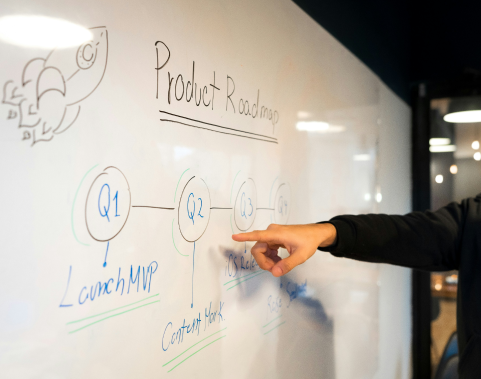 Product Roadmap
Q1
Q2
Q3
Launch MVP
Content Mark.